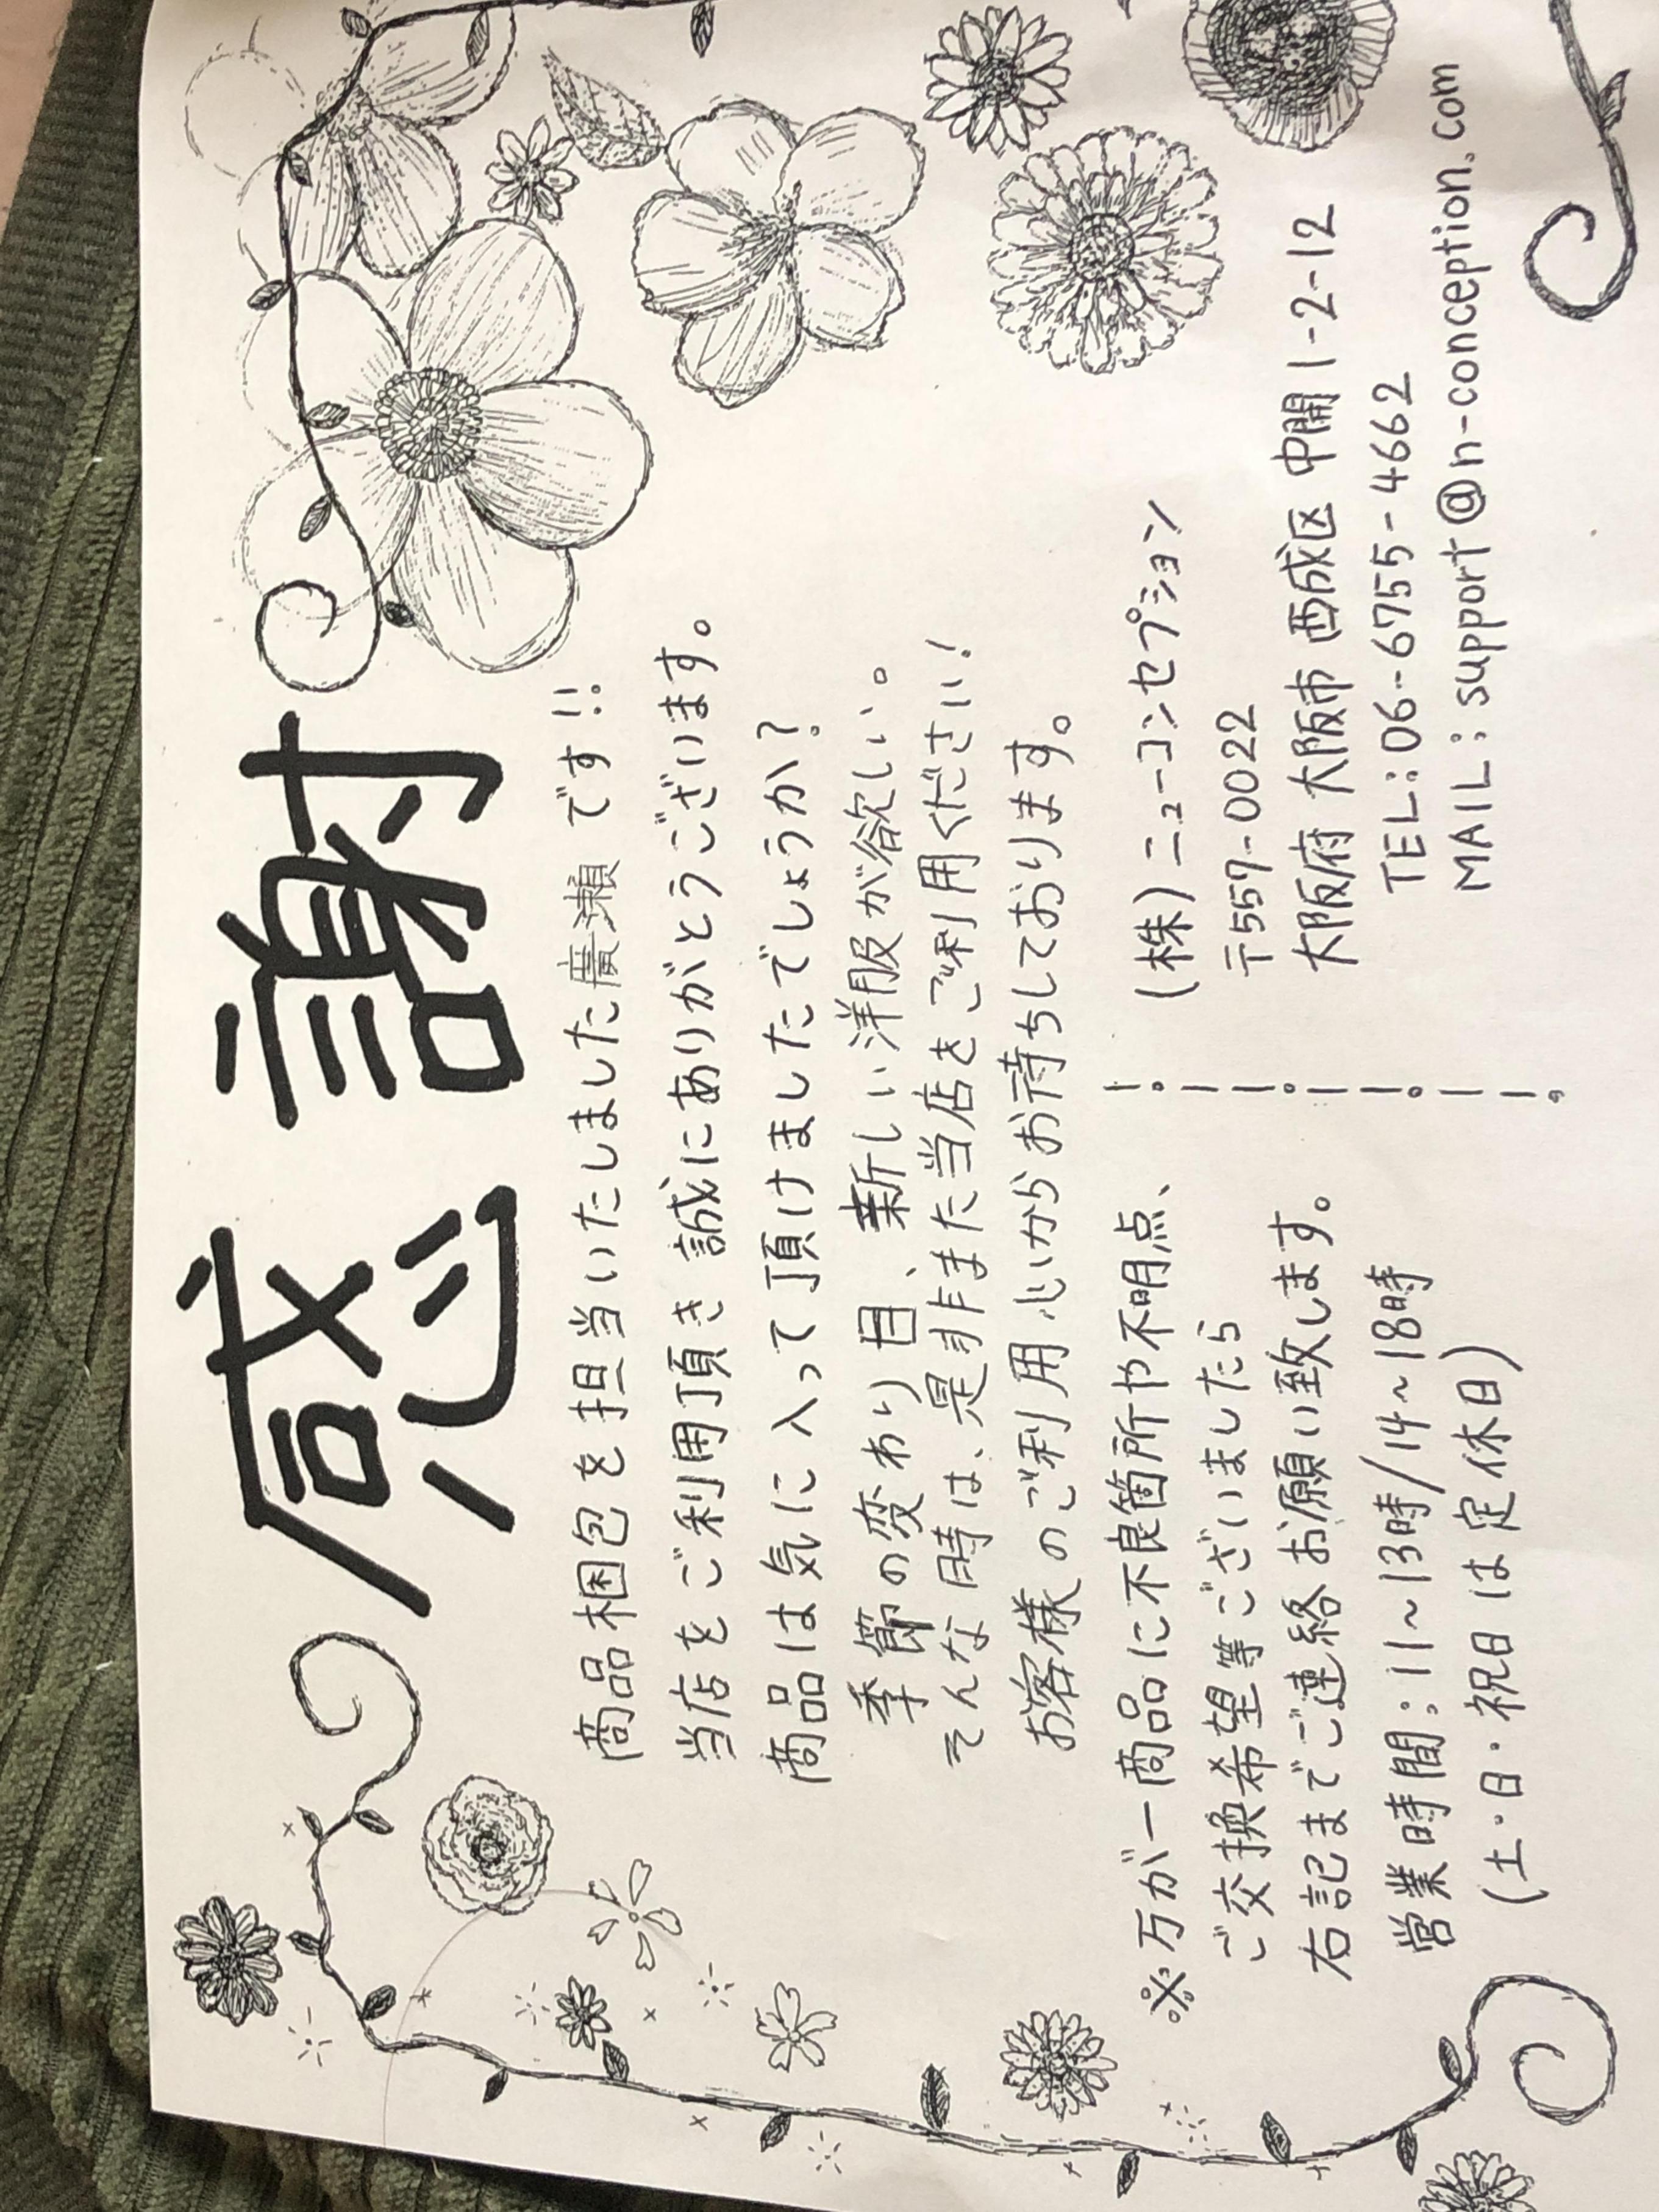 感謝
商品梱包を担当いたしました廣瀬です!!
当店をご利用頂き誠にありがとうございます。
商品は気に入って頂けましたでしょうか?
季節の変わり目、新しい洋服が欲しい。
そんな時は、是非また当店をご利用ください!
お客様のご利用心からお待ちしております。
※万が一商品に不良箇所や不明点、
ご交換希望等ございましたら
右記までご連絡お願い致します。
営業時間:11~13時/14~18時
(土・日・祝日は定休日)
(株)ニューコンセプション
〒557-0022
大阪府大阪市西成区中開1-2-12
TEL:06-6755-4662
MAIL:support@n-conception.com